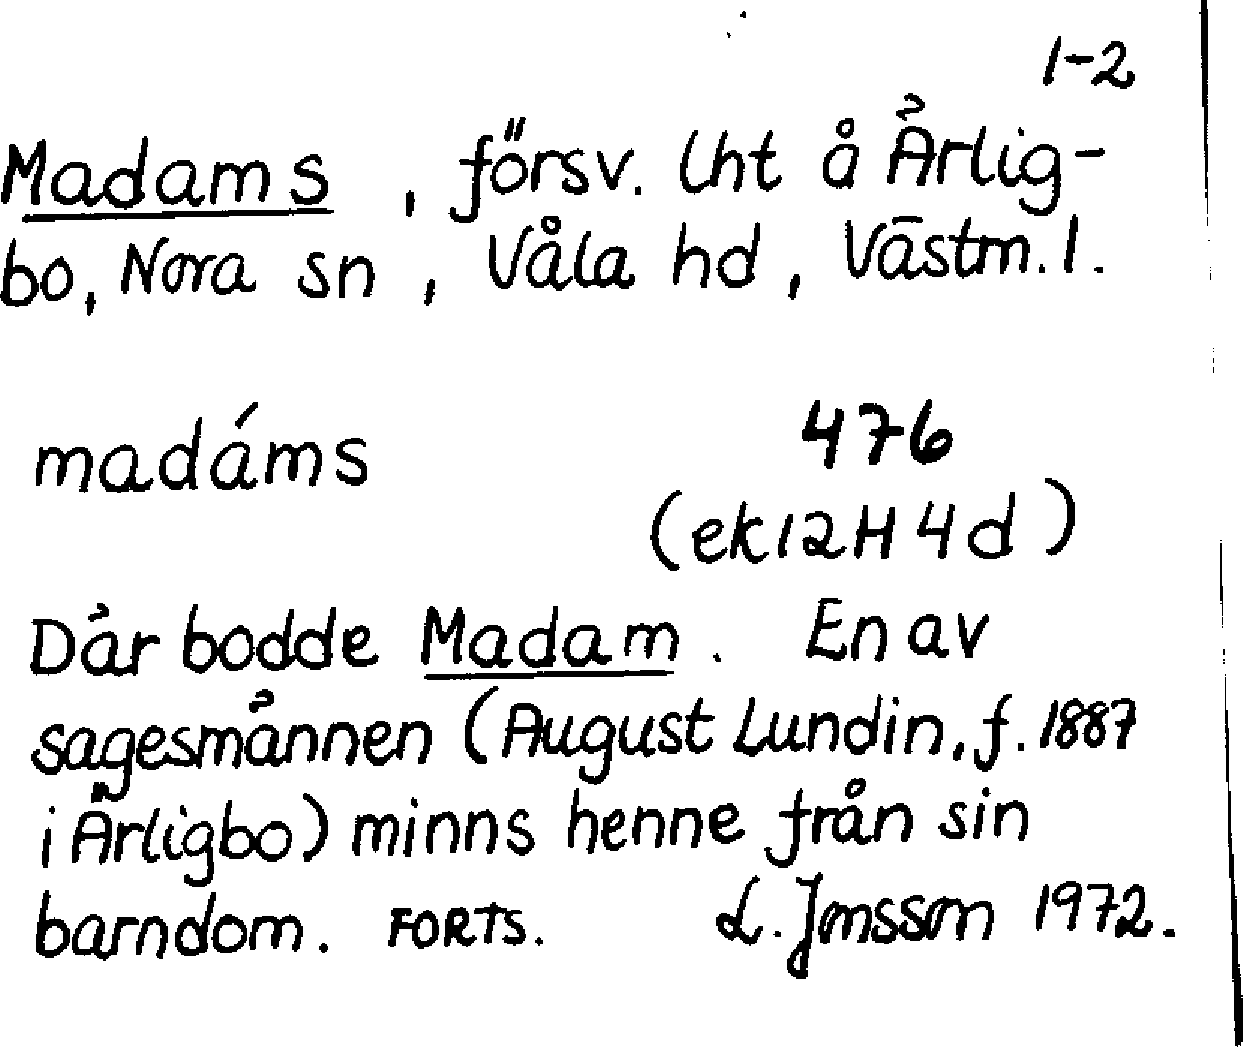 1-2
Madams, försv. lht å Ärlig-
bo, Nora sn, Våla hd, Västm. l.
madáms 476
(ek 12H 4d)
Där bodde Madam. En av
sagesmännen (August Lundin, f. 1887
i Ärligbo) minns henne från sin
barndom. FORTS. L. Jonsson 1972.